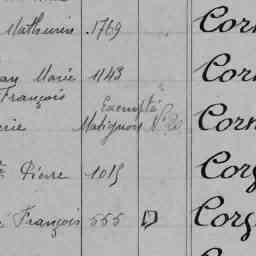 Mathurin 1769 Corn
Marie 1143 Corn
François
Exempté
Matignon Nº20 Corn
Pierre 1015 Corg
François 555 D Corg